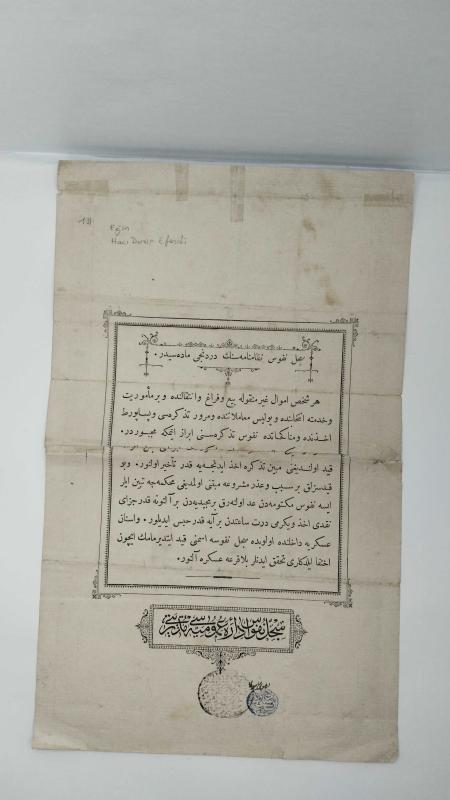 Egin
سجل نفوس نظامنامه‌سنك دردنجی ماده‌سیدر .
هر شخص اموال غیر منقوله بیع وفراغ وانتقالنده وبر مأموریت
وخدمته انتخابنده وپولیس معاملاتنده ومرور تذكره‌سی وپساپورط
اخذنده ومحاكماتده نفوس تذكره‌سنی ابراز ایتمكه مجبوردر.
قید اولندیغنی مبین تذكره اخذ ایدنجه‌یه قدر تأخیر اولنور. وبو
قیدسزلق برسبب وعذر مشروعه مبنی اولمدیغی محكمه‌جه تبین ایلر
ایسه نفوس مكتومه‌دن عد اولنه‌رق برمجیدیه‌دن بر آلتونه قدر جزای
نقدی اخذ ویكرمی درت ساعتدن بر آیه قدر حبس ایدیلور. واسنان
عسكریه داخلنده اولوبده سجل نفوسه اسمنی قید ایتدیرمامك ایچون
اختفا ایلدكلری تحقق ایدنلر بلاقرعه عسكره آلنور.
سجل نفوس اداره عمومیه‌سی